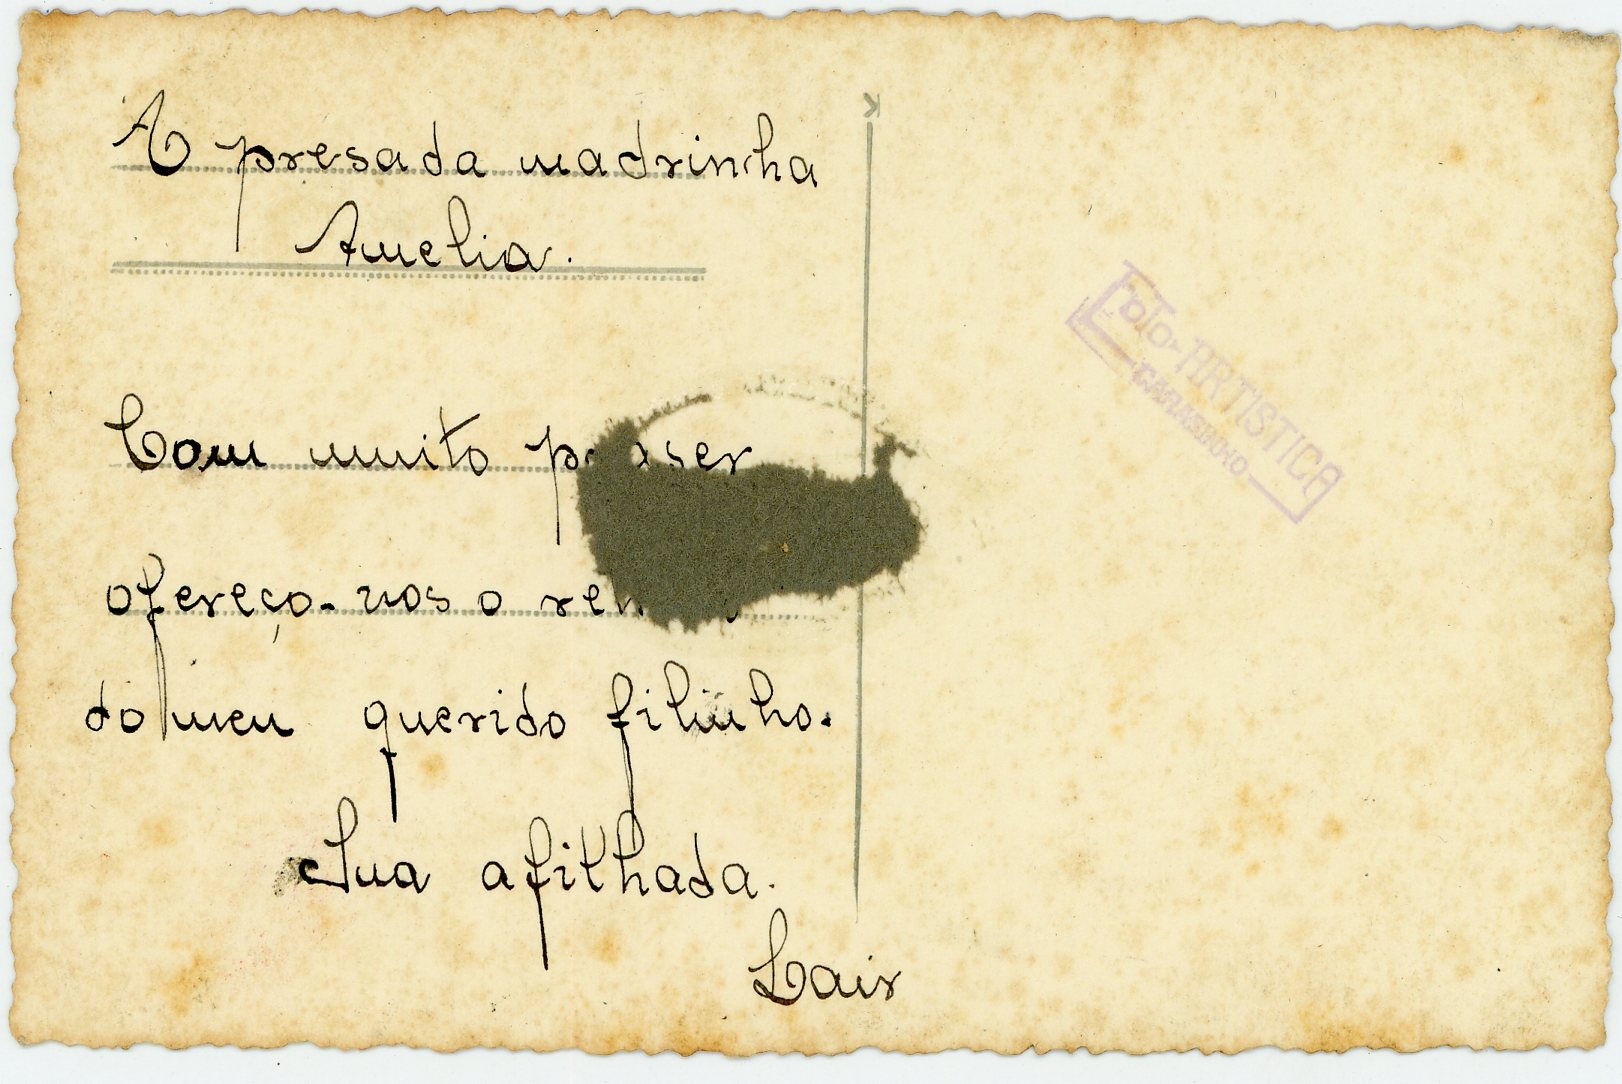 A presada madrinha
Amelia.
Com muito
ofereço-vos o
do meu querido filinho.
Sua afilhada.
Lair
FOTO-ARTISTICA
CARASINHO